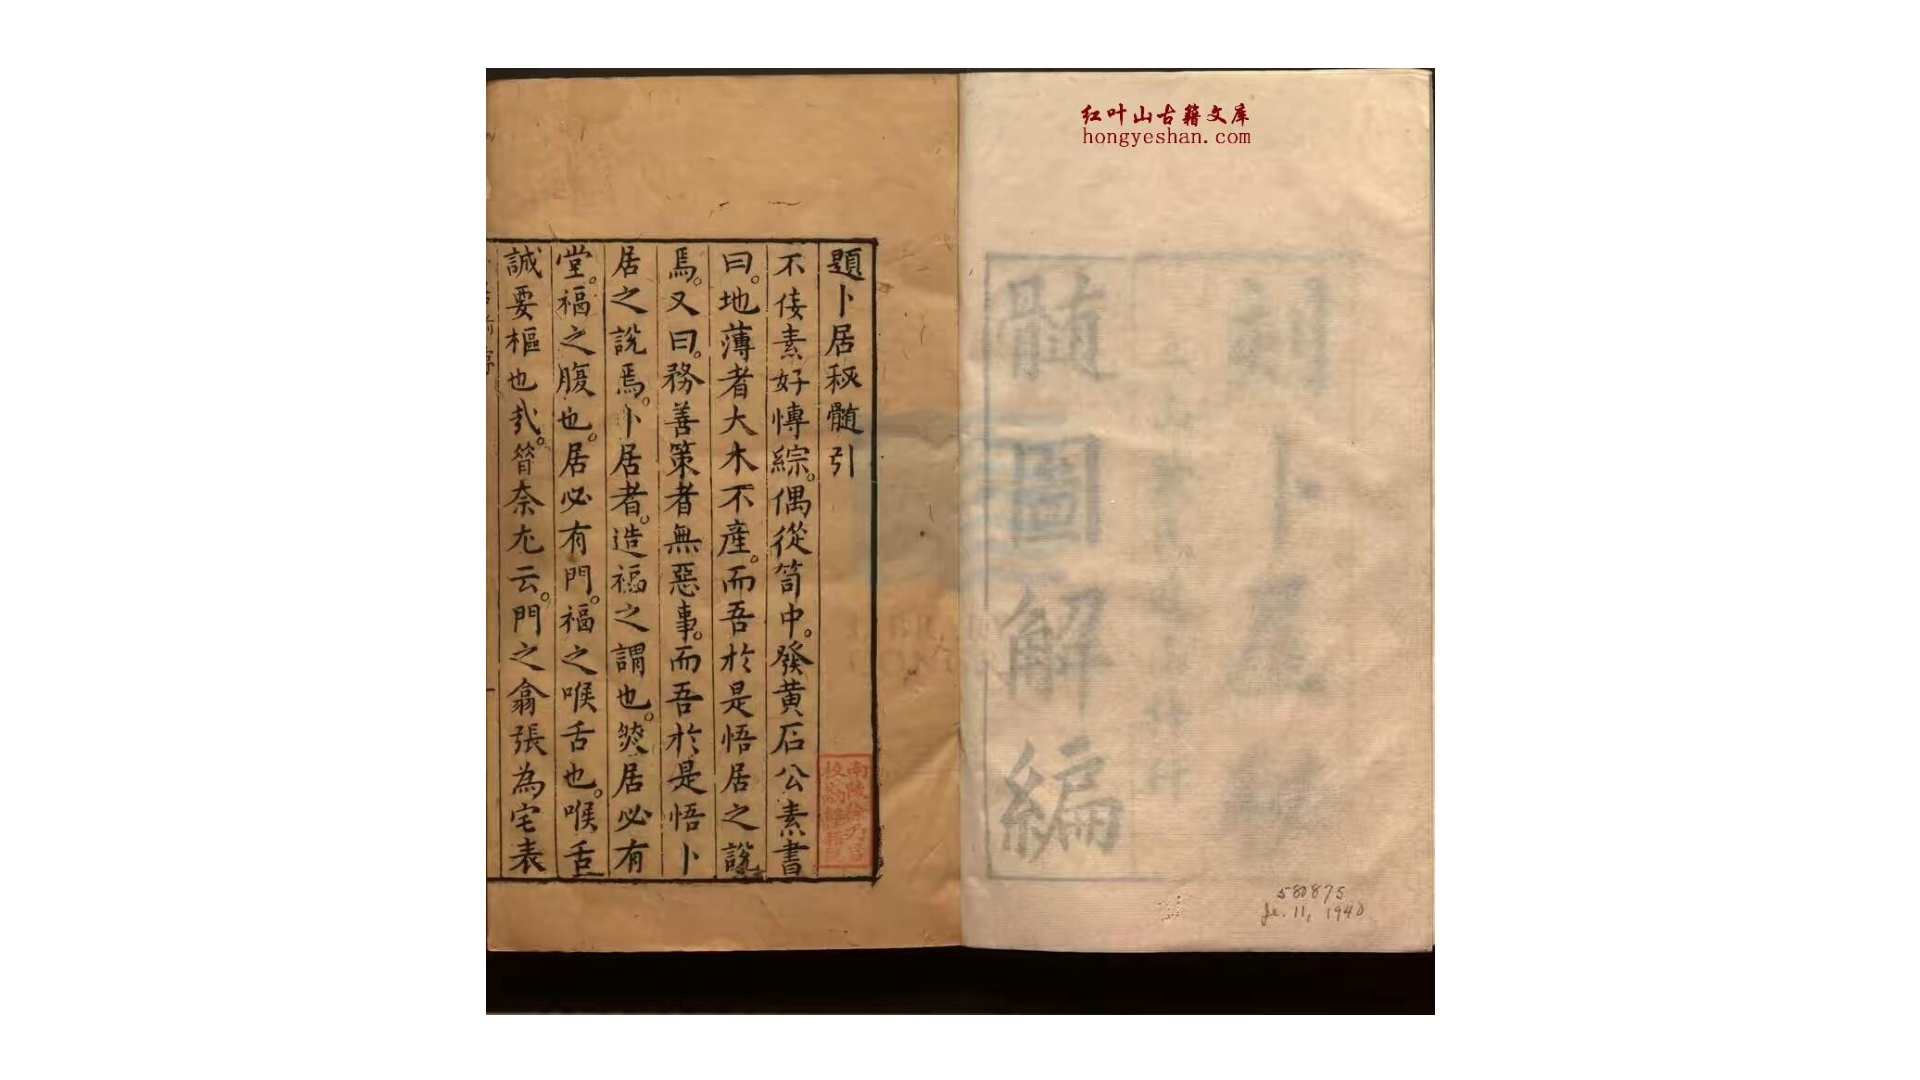 红叶山古籍文库
hongyeshan.com
刻卜居秘
髓圖解編
580875
Je. 11, 1940
題卜居秘髓引
不佞素好博綜。偶從笥中。發黄石公素書
曰。地薄者大木不產。而吾於是悟居之說
焉。又曰。務善策者無惡事。而吾於是悟卜
居之說焉。卜居者。造福之謂也。然居必有
堂。福之腹也。居必有門。福之喉舌也。喉舌
誠要樞也哉。管奈尤云。門之翕張為宅表
南陵徐乃昌